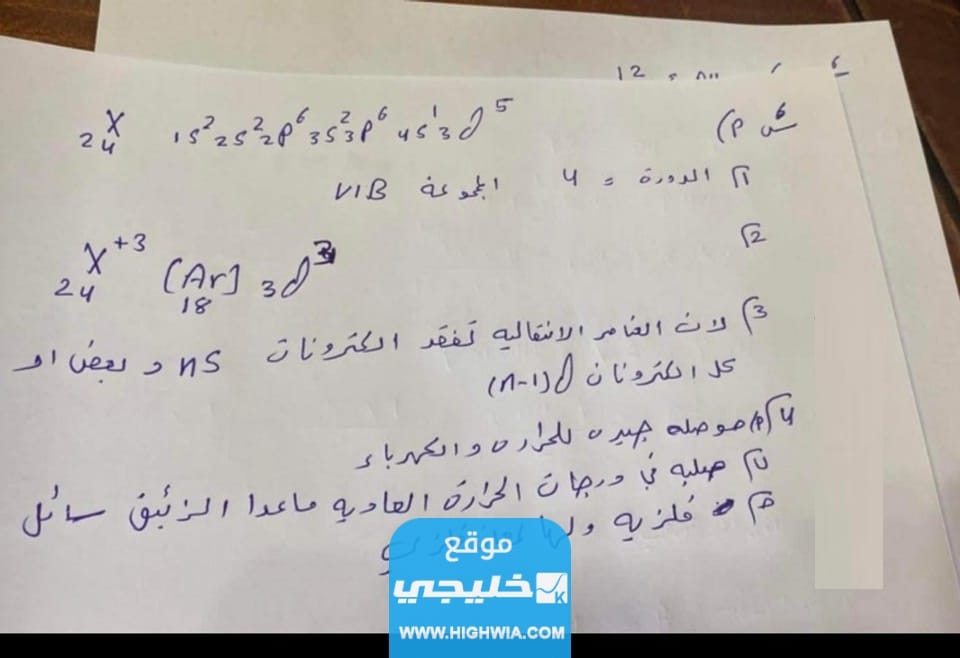 12 =
س6 P)
₂₄X 1s² 2s² 2p⁶ 3s² 3p⁶ 4s¹ 3d⁵
1) الدورة = 4 المجموعة VIB
2)
₂₄X⁺³ [Ar]₁₈ 3d³
3) لان العناصر الانتقاليه تفقد الكترونات ns وبعض او
كل الكترونات (n-1)d
4) P) موصله جيده للحراره والكهرباء
ب) صلبه في درجات الحرارة العاديه ماعدا الزئبق سائل
ج) فلزيه ولها
موقع
خليجي
K
WWW.HIGHWIA.COM